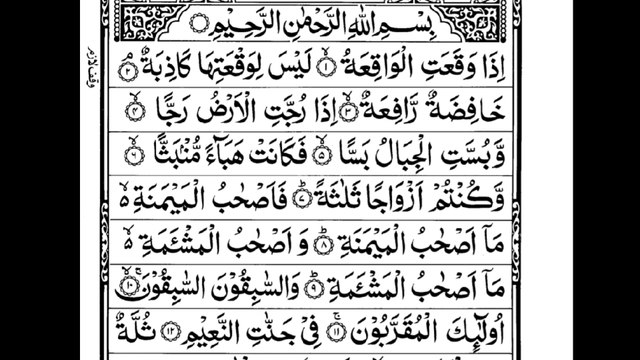 بِسْمِ اللهِ الرَّحْمٰنِ الرَّحِيْمِ
اِذَا وَقَعَتِ الْوَاقِعَةُ ۙ‏﴿۱﴾ لَيْسَ لِوَقْعَتِهَا كَاذِبَةٌ ۘ‏﴿۲﴾
خَافِضَةٌ رَّافِعَةٌ ۙ‏﴿۳﴾ اِذَا رُجَّتِ الْاَرْضُ رَجًّا ۙ‏﴿۴﴾
وَّبُسَّتِ الْجِبَالُ بَسًّا ۙ‏﴿۵﴾ فَكَانَتْ هَبَآءً مُّنْۢبَثًّا ۙ‏﴿۶﴾
وَّكُنْتُمْ اَزْوَاجًا ثَلٰثَةً ؕ‏﴿۷﴾ فَاَصْحٰبُ الْمَيْمَنَةِ ۙ۬
مَاۤ اَصْحٰبُ الْمَيْمَنَةِ ؕ‏﴿۸﴾ وَ اَصْحٰبُ الْمَشْـَٔمَةِ ۙ۬
مَاۤ اَصْحٰبُ الْمَشْـَٔمَةِ ؕ‏﴿۹﴾ وَالسّٰبِقُوْنَ السّٰبِقُوْنَ ۚۙ‏﴿۱۰﴾
اُولٰٓئِكَ الْمُقَرَّبُوْنَ ۚ‏﴿۱۱﴾ فِيْ جَنّٰتِ النَّعِيْمِ ‏﴿۱۲﴾ ثُلَّةٌ
وقف لازم